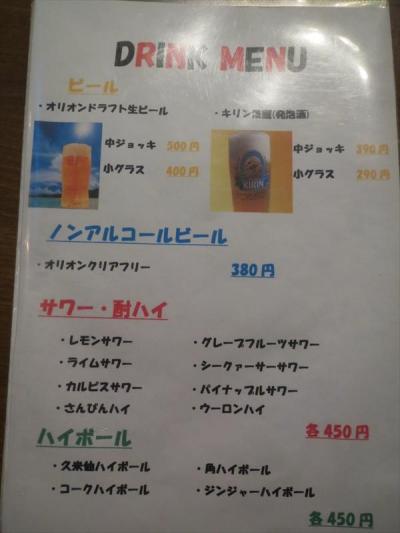 DRINK MENU
ビール
・オリオンドラフト生ビール ・キリン (発泡酒)
中ジョッキ 500円 中ジョッキ 390円
小グラス 400円 小グラス 290円
KIRIN
ノンアルコールビール
・オリオンクリアフリー 380円
サワー・酎ハイ
・レモンサワー ・グレープフルーツサワー
・ライムサワー ・シークァーサーサワー
・カルピスサワー ・パイナップルサワー
・さんぴんハイ ・ウーロンハイ
各450円
ハイボール
・久米仙ハイボール ・角ハイボール
・コークハイボール ・ジンジャーハイボール
各450円